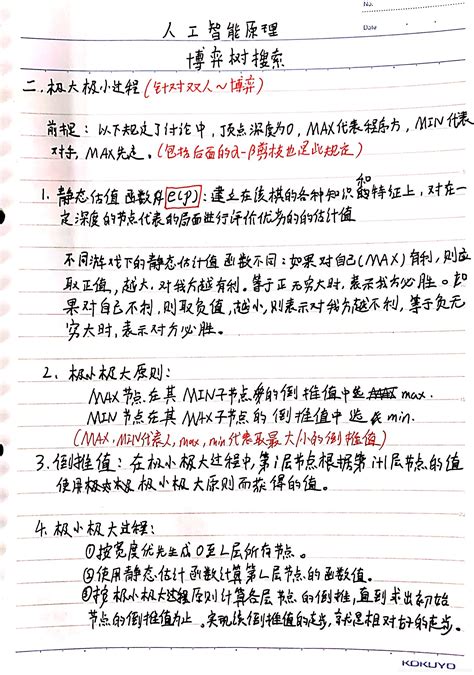 No.
Date
人工智能原理
博弈树搜索
二.极大极小过程(针对双人~博弈)
前提:以下规定了讨论中,顶点深度为0,MAX代表程序方,MIN代表
对手,MAX先走.(包括后面的α-β剪枝也是此规定)
1.静态估值函数 e(p):建立在该棋的各种知识和特征上,对在一
定深度的节点代表的局面进行评价优劣的的估计值
不同游戏下的静态估计值函数不同:如果对自己(MAX)有利,则应
取正值,越大,对我方越有利。等于正无穷大时,表示我方必胜。如
果对自己不利,则取负值,越小,则表示对我方越不利,等于负无
穷大时,表示对方必胜。
2.极小极大原则:
MAX节点在其MIN子节点的倒推值中选max.
MIN节点在其MAX子节点的倒推值中选min.
(MAX,MIN代表人,max,min代表取最大/小的倒推值)
3.倒推值:在极小极大过程中,第i层节点根据第i+1层节点的值
使用极小极大原则而获得的值。
4.极小极大过程:
①按宽度优先生成0至L层所有节点。
②使用静态估计函数计算第L层节点的函数值。
③按极小极大过程原则计算各层节点的倒推,直到求出初始
节点的倒推值为止。实现该倒推值的走步,就是相对好的走步。
KOKUYO